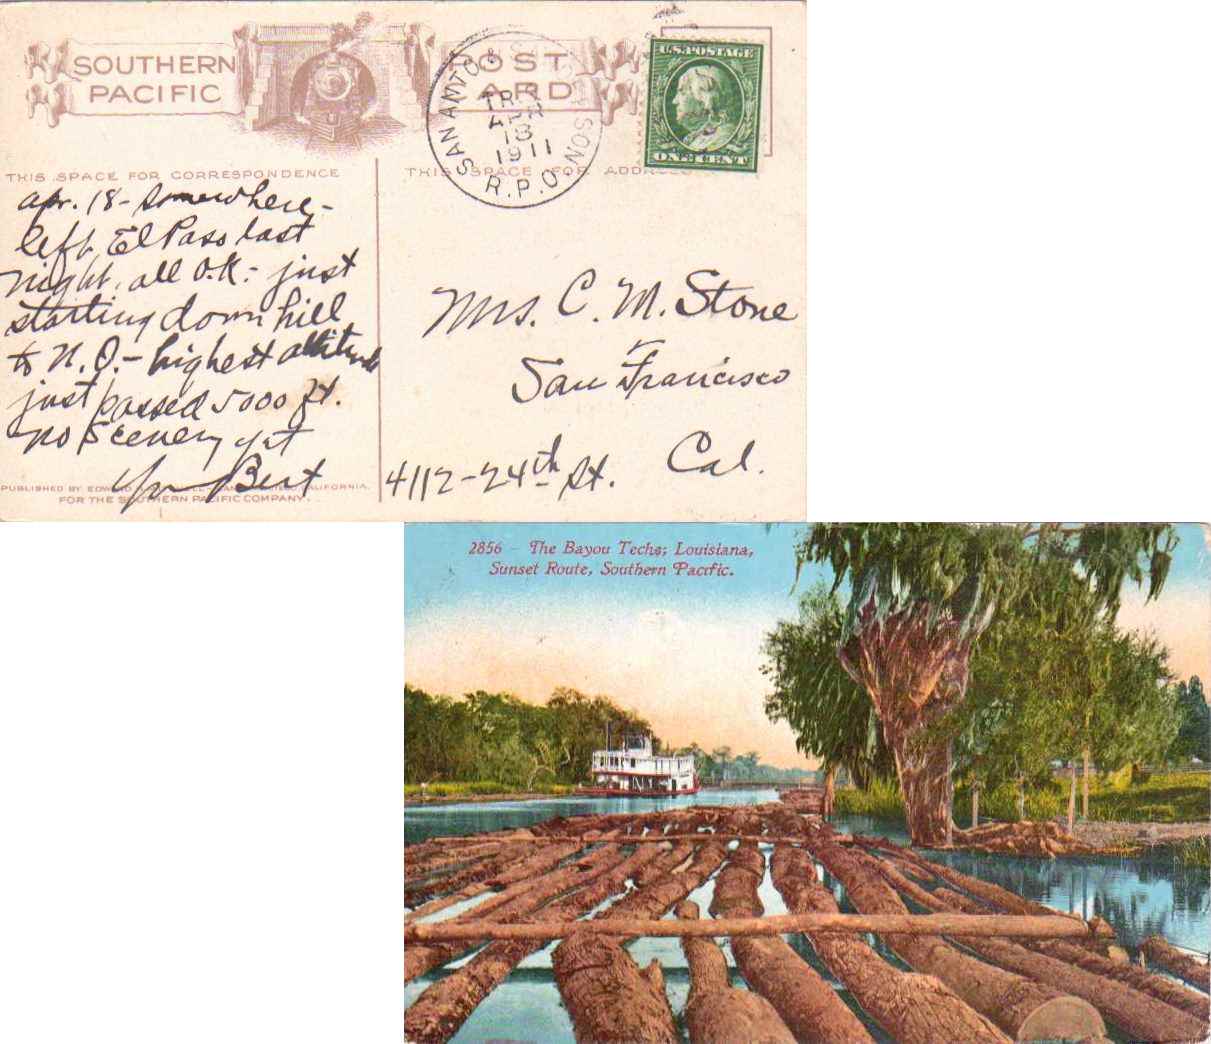 SOUTHERN
PACIFIC
POST
CARD
U.S. POSTAGE
ONE CENT
SAN ANTO &
SON
R.P.O.
TR
APR
18
1911
THIS SPACE FOR CORRESPONDENCE
THIS SPACE FOR ADDRESS
Apr. 18 - Somewhere -
left El Paso last
night. all O.K. - just
starting down hill
to N.O. - highest altitude
just passed 5000 ft.
no scenery yet
Bert
Mrs. C. M. Stone
San Francisco
Cal.
4112 - 24th St.
PUBLISHED BY EDWARD CALIFORNIA.
FOR THE SOUTHERN PACIFIC COMPANY.
2856 - The Bayou Teche; Louisiana,
Sunset Route, Southern Pacific.